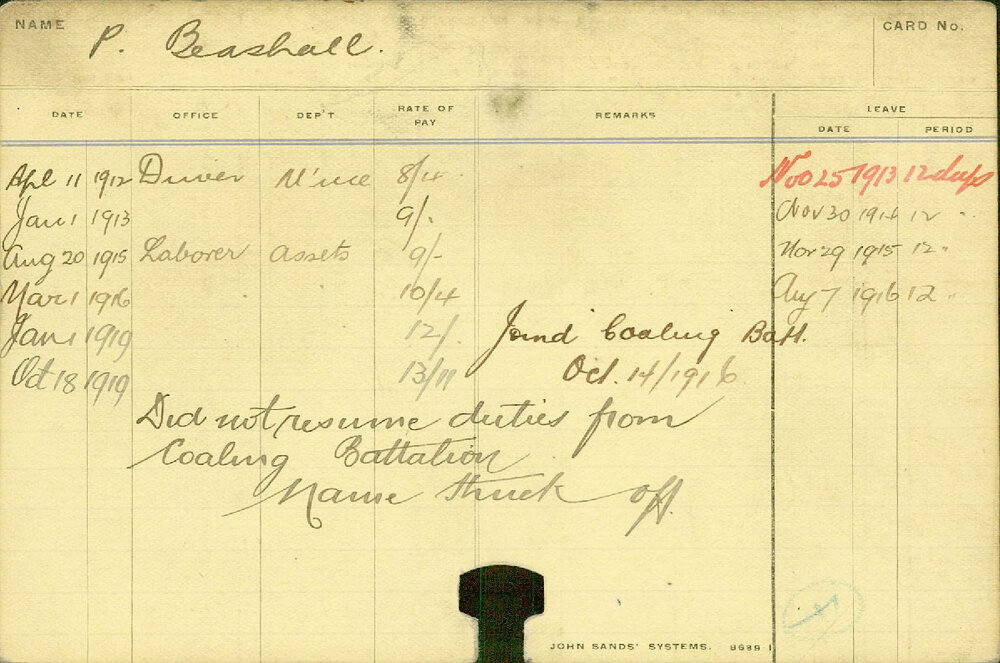 NAME P. Beashall. CARD No.
DATE OFFICE DEP'T RATE OF PAY REMARKS LEAVE
DATE PERIOD
Apl 11 1912 Driver 8/4 Nov 25 1913 12 days
Jan 1 1913 9/- Nov 30 1914 12 "
Aug 20 1915 Laborer Assets 9/- Nov 29 1915 12 "
Mar 1 1916 10/4 Aug 7 1916 12 "
Jan 1 1919 12/- Joind Coaling Batt.
Oct 18 1919 13/11 Oct. 14/1916
Did not resume duties from
Coaling Battation
Name Struck off.
JOHN SANDS' SYSTEMS. 8689